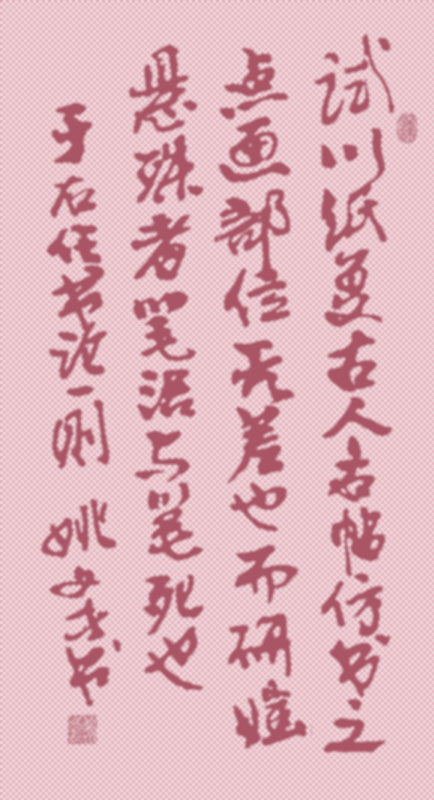 试以纸复古人名帖仿书之
点画部位无差也而研媸
悬殊者笔活与笔死也
于右任书论一则 姚才书